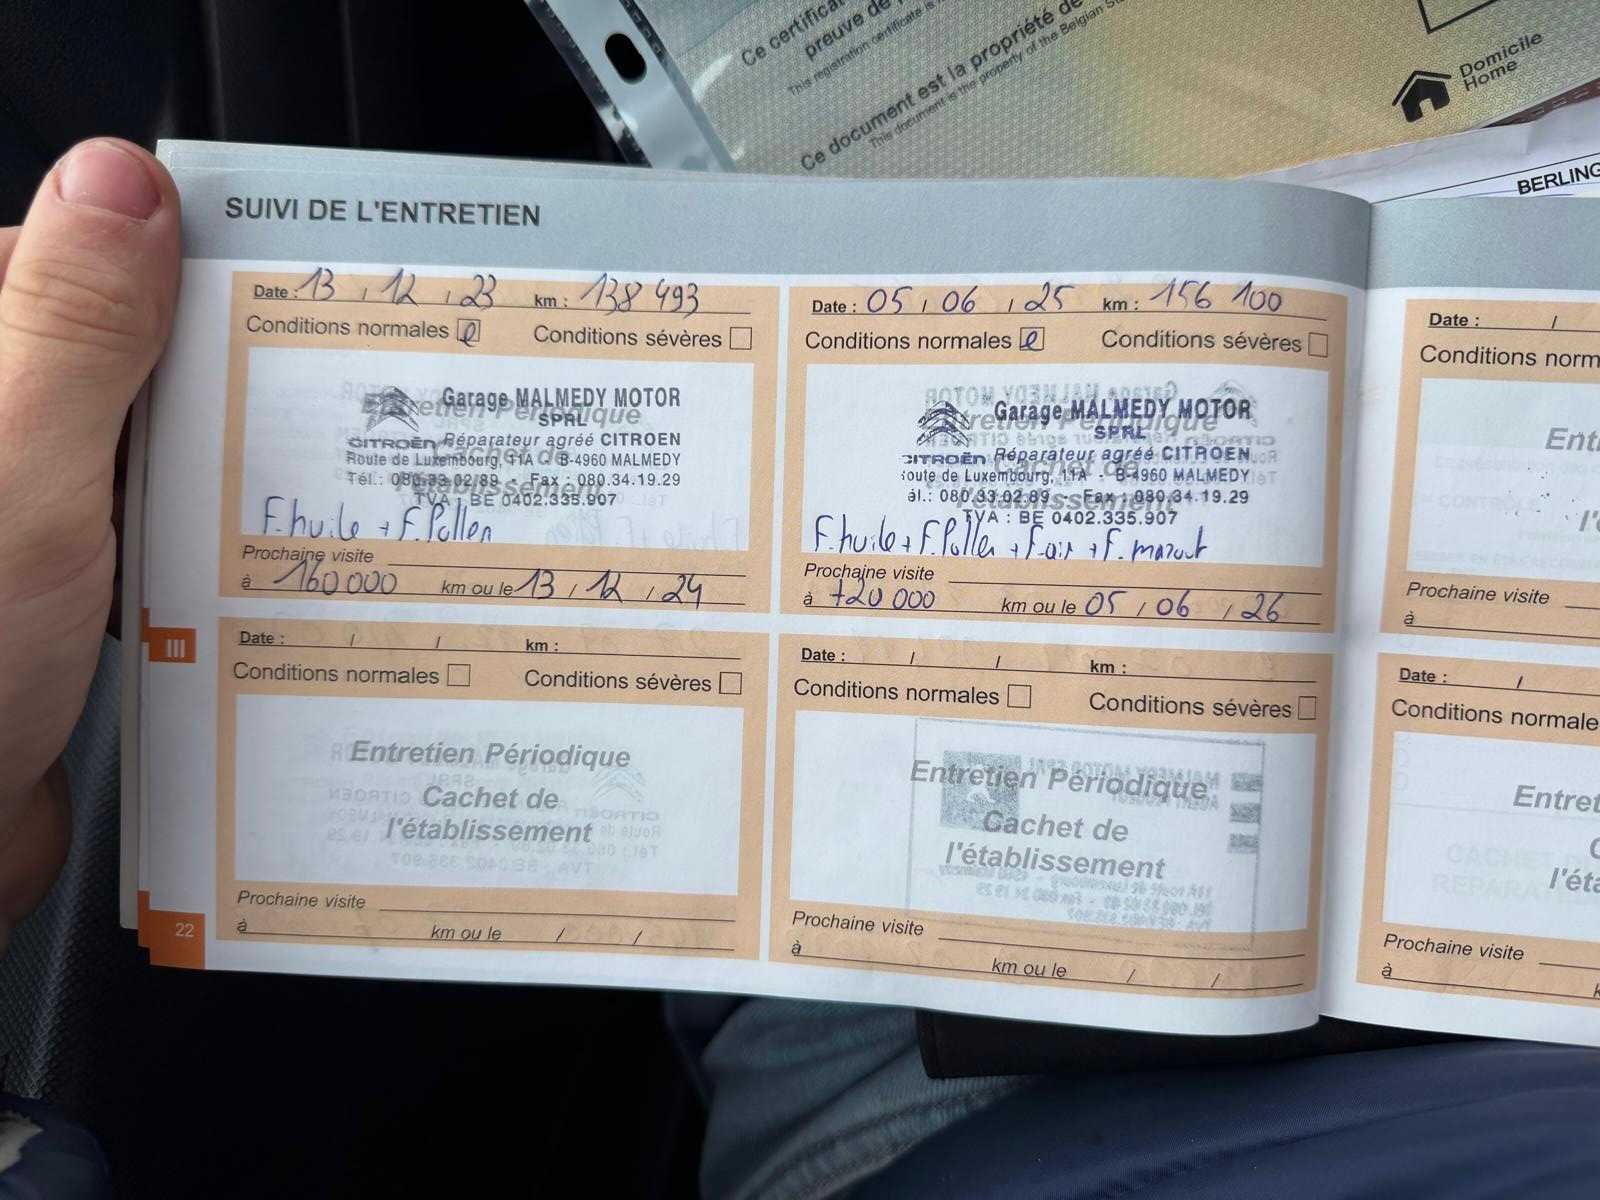 Ce certificat
preuve de
This registration certificate is
Ce document est la propriété de
This document is the property of the Belgian
Domicile
Home
BERLING
SUIVI DE L'ENTRETIEN
Date : 13 / 12 / 23 km : 138 493
Conditions normales Conditions sévères
Entretien Périodique
Cachet de
l'établissement
Garage MALMEDY MOTOR
SPRL
CITROËN Réparateur agréé CITROEN
Route de Luxembourg, 11A - B-4960 MALMEDY
Tél.: 080.33.02.89 - Fax : 080.34.19.29
TVA : BE 0402.335.907
F. huile + F. Pollen
Prochaine visite
à 160 000 km ou le 13 / 12 / 24
Date : 05 / 06 / 25 km : 156 100
Conditions normales Conditions sévères
Entretien Périodique
Cachet de
l'établissement
Garage MALMEDY MOTOR
SPRL
CITROËN Réparateur agréé CITROEN
oute de Luxembourg, 11A - B-4960 MALMEDY
él.: 080.33.02.89 - Fax : 080.34.19.29
TVA : BE 0402.335.907
F. huile + F. Pollen + F. air + F. mazout
Prochaine visite
à +20 000 km ou le 05 / 06 / 26
III
Date : / / km :
Conditions normales Conditions sévères
Entretien Périodique
Cachet de
l'établissement
Prochaine visite
à km ou le / /
Date : / / km :
Conditions normales Conditions sévères
Entretien Périodique
Cachet de
l'établissement
Prochaine visite
à km ou le / /
22
Date : /
Conditions norm
Entr
l'é
Prochaine visite
à
Date : /
Conditions normale
Entret
C
l'éta
Prochaine visite
à k